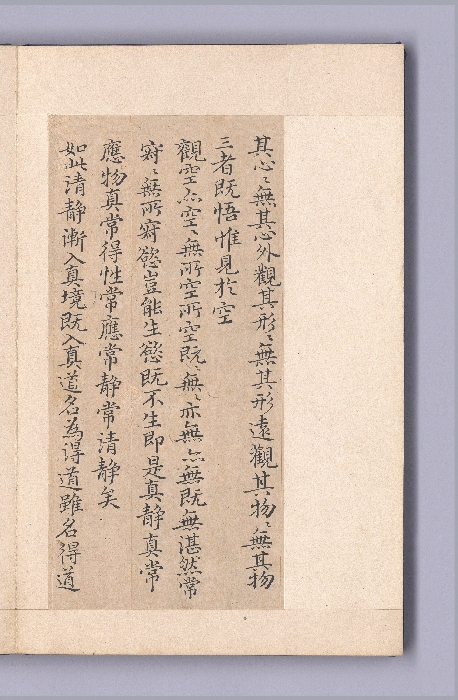 其心〻無其心外觀其形〻無其形遠觀其物〻無其物
三者既悟惟見於空
觀空亦空〻無所空所空既〻無〻亦無〻亦無既無湛然常
寂〻無所寂慾豈能生慾既不生即是真静真常
應物真常得性常應常静常清静矣
如此清静漸入真境既入真道名為得道雖名得道